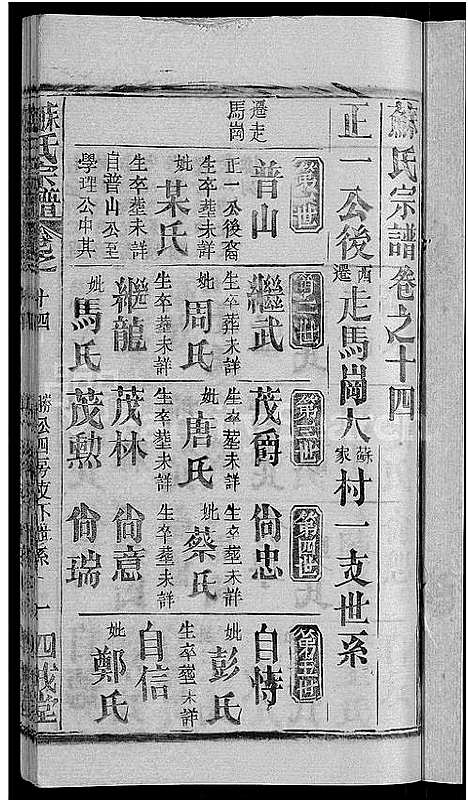 蘇氏宗譜卷之十四
正一公後西遷走馬崗大蘇家村一支世系
遷走
馬崗
第一世
普山
正一公後裔
生卒塟未詳
妣某氏
生卒塟未詳
自普山公至
學理公中其
第二世
繼武
生卒葬未詳
妣周氏
生卒塟未詳
繼龍
妣馬氏
第三世
茂爵
生卒塟未詳
妣唐氏
生卒塟未詳
茂林
茂勳
第四世
尙忠
生卒塟未詳
妣蔡氏
生卒塟未詳
尙意
尙瑞
第五世
自恃
妣彭氏
生卒塟未詳
自信
妣鄭氏
蘇氏宗譜
卷之十四